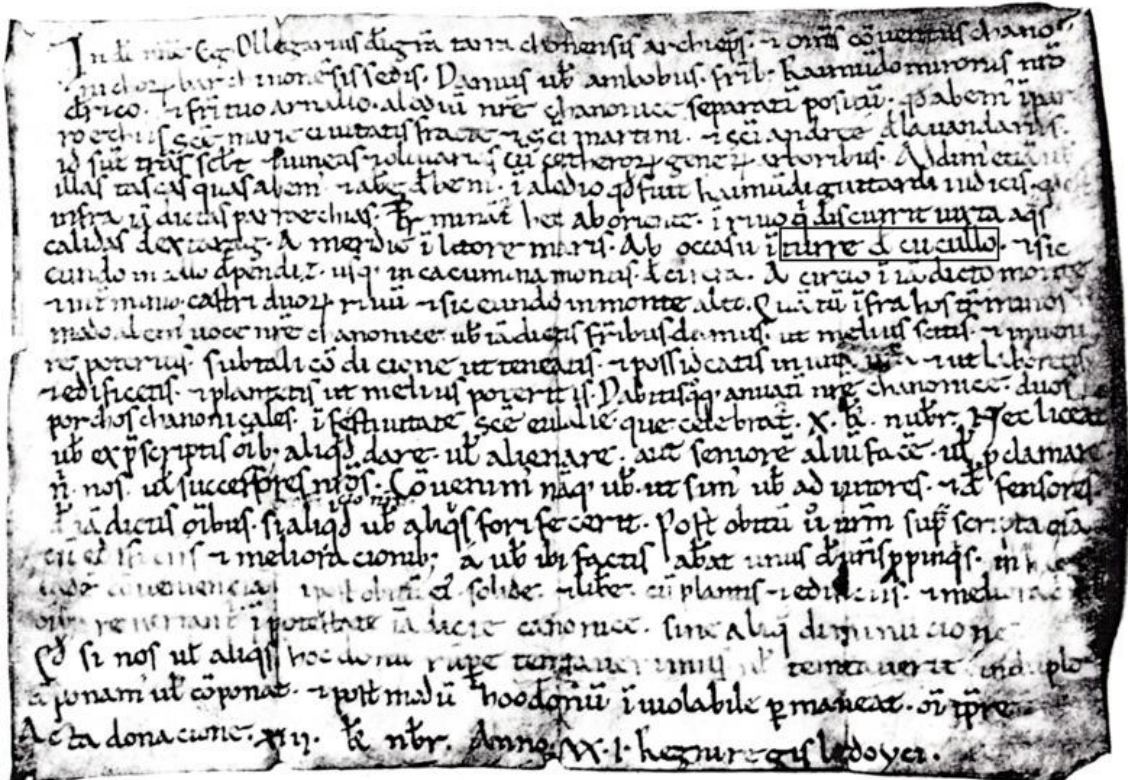 In di nne Eg Ollegarius di gra tarrachonensis archieps. & oms coventus chano
nichor barchinonesis sedis. Damus ub ambobus. frib. Raimudo mironis nro
clerico. & fri tuo arnallo. alodiu nre chanonice separatu positu. qd abem i par
roechiis sce marie civitatis fracte & sci martini. & sci andree d lavandariis.
id sut tras vineas & olivarios cu ceteror gener arboribus. Addim etia ub
illas tascas quas abem & abe debem. i alodio qd fuit Raimudi guitardi iudicis. qd est
infra ia dictas parroechias. Terminat hec ab oriente. i rivo q discurrit iuxta aqs
calidas de A meridie i litore maris. Ab occasu i turre d cucullo. & sic
eundo usq in cacumina montis d A circio i ia dicto monte
& in tmino castri duor rivu & sic eundo in monte alto. Qua tu ifra hos tminos
abem voce nre chanonice. ub ia dictis fribus damus. ut melius scitis & inveni
re poteritis. sub tali codicione ut teneatis & possideatis in vita vra & ut laboretis
& edificetis. & plantetis ut melius poteritis. Dabitisq. anuati nre chanonice. duos
porchos chanonicales. i festivitate sce eulalie que celebrat. X. kl. nubr. Nec liceat
ub ex pscriptis oib. aliqd dare. ul alienare. aut seniore aliu face. ul pclamare
n. nos. ul successores nros. Covenim naq. ub. ut sim ub adiutores. & defensores
d ia dictis oibus. si aliqd ub aliqs forifecerit. Post obitu u urm supscripta oia
cu edificiis & melioracionib; a ub ibi factis abat unus d uris ppinqis. in hac
eade coveniencia. & post obitu ei. solide. & libe. cu plantis & edificiis. & melioracio
revertant i potestate ia dicte canonice. sine aliq diminucione
Qd si nos ul aliqs hoc donu rupe temtaverimus ul temtaverit. in duplo
coponam ul coponat. & post modu hoc donu iviolabile pmaneat. oi tpre.
Acta donacione. XIII. kl nbr. Anno. XX. I. Regni regis ledoyci.